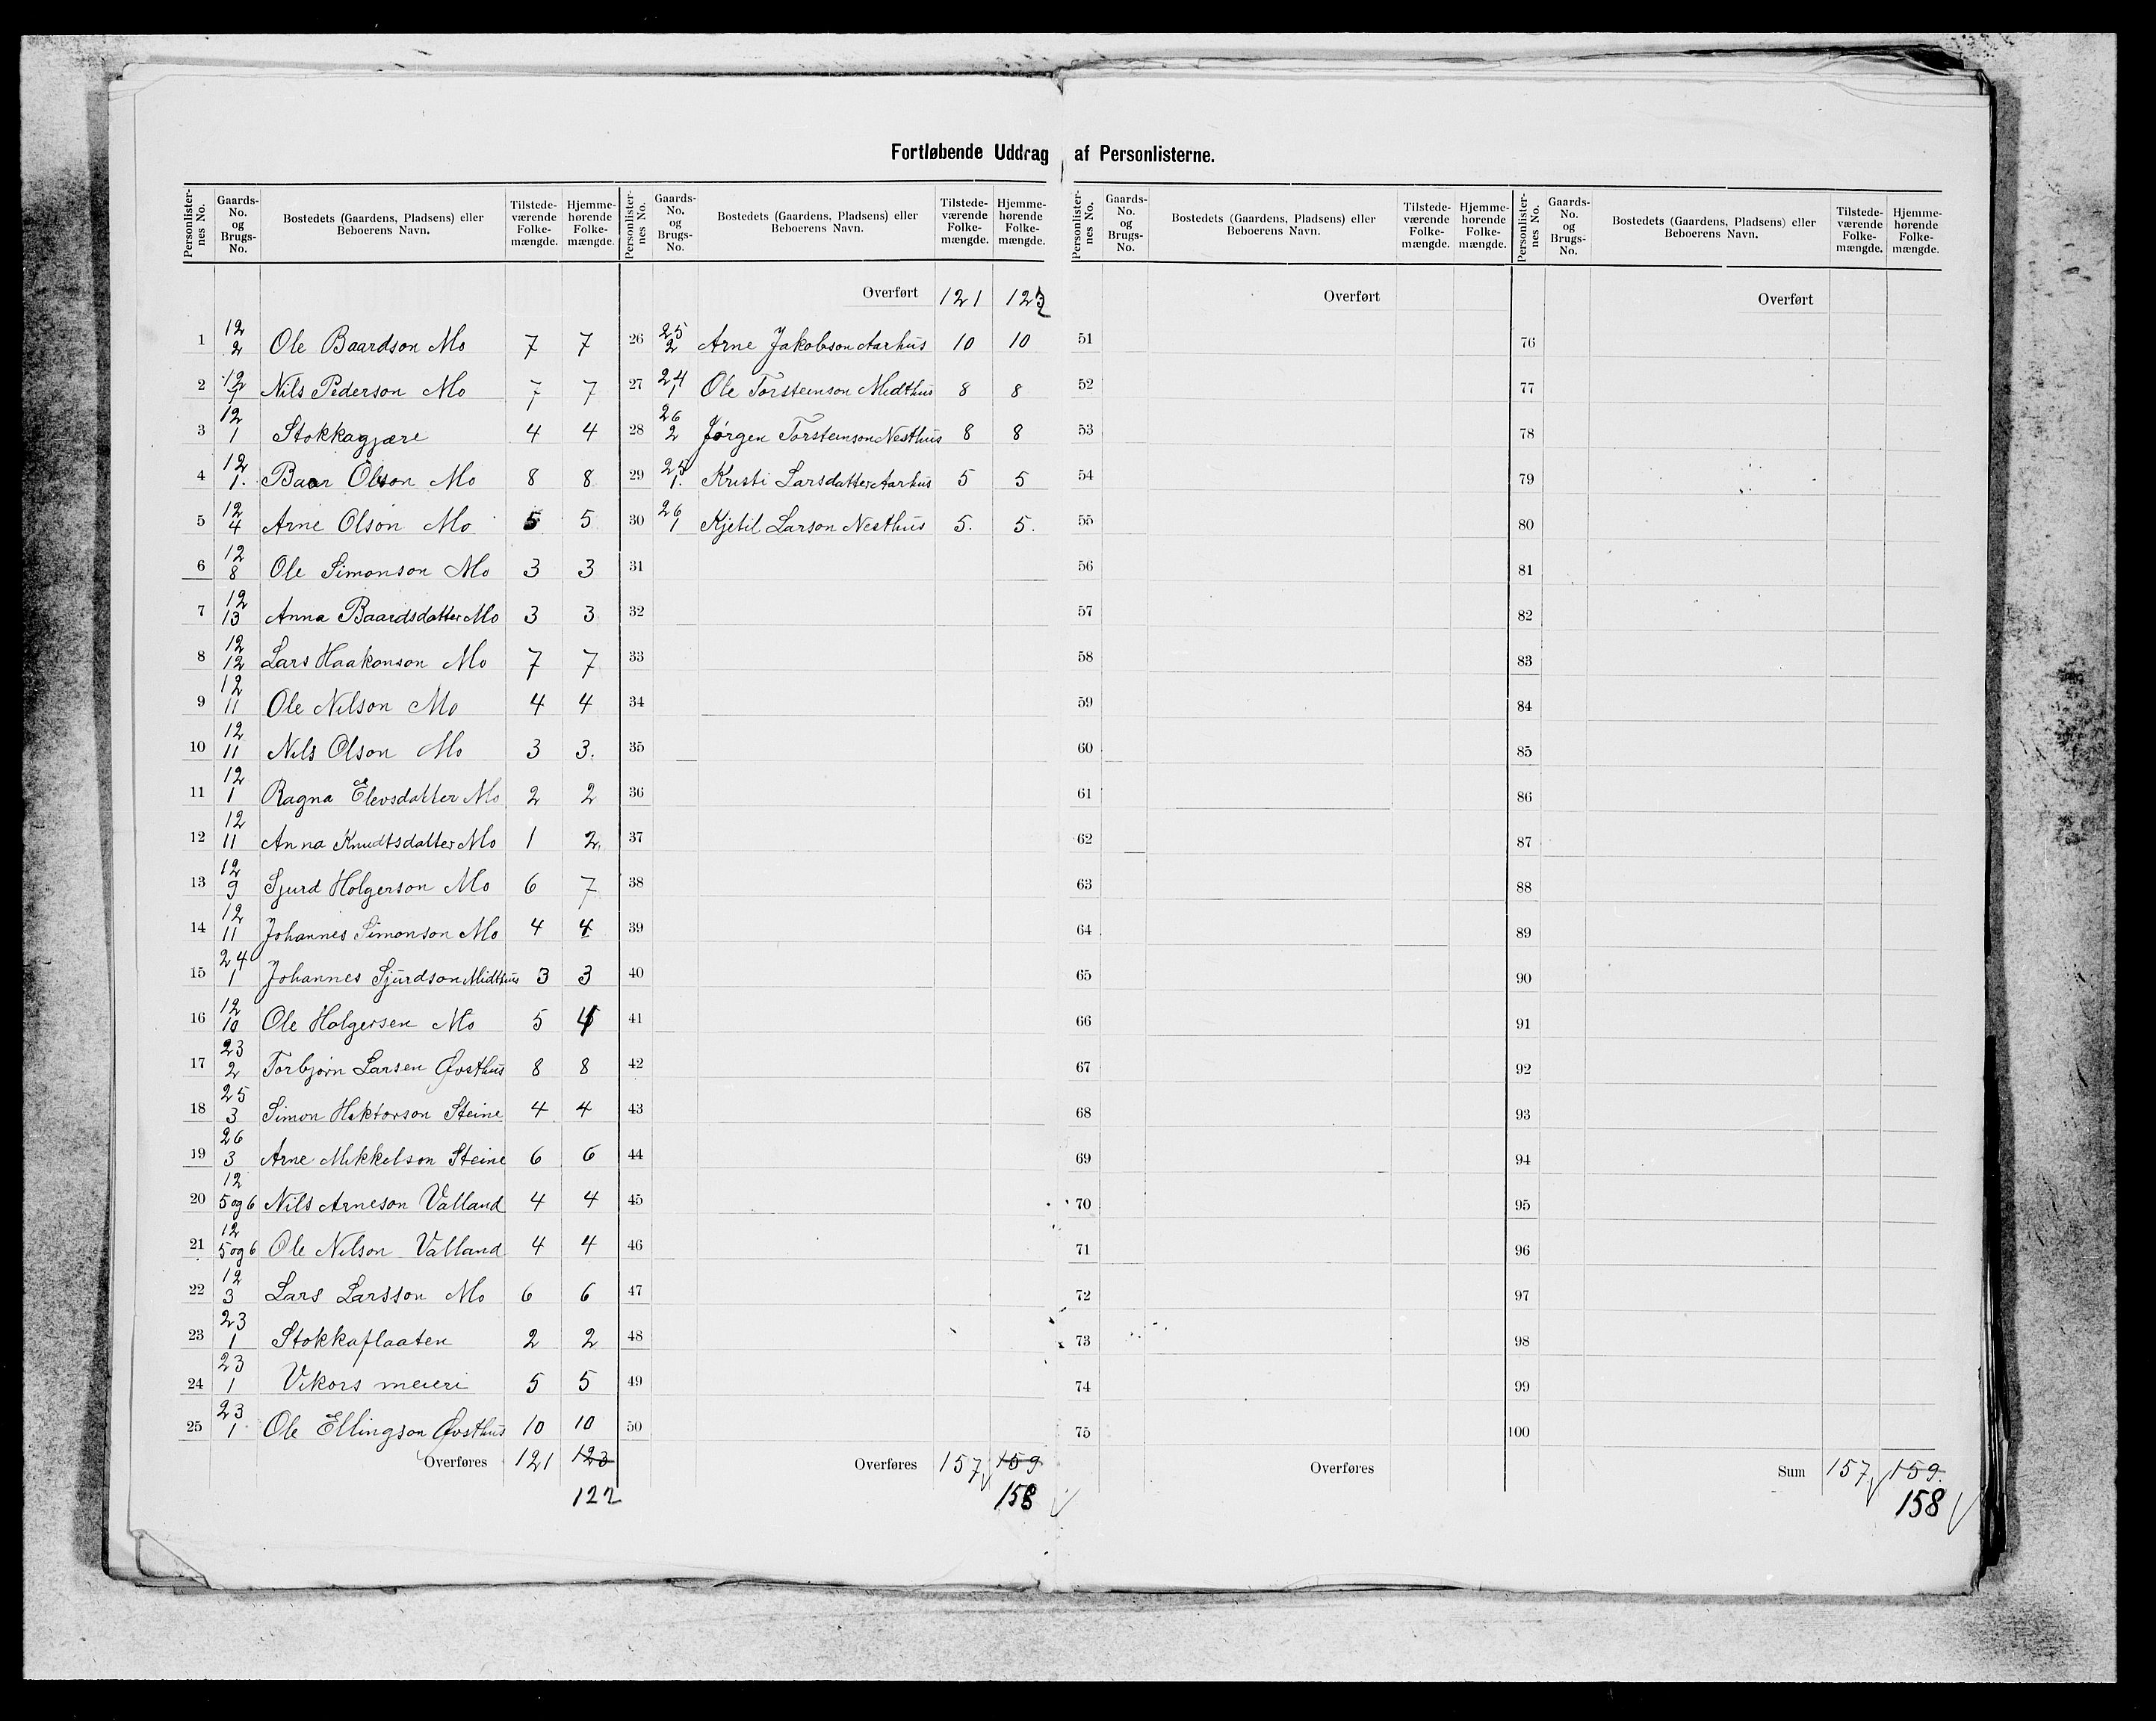 Fortløbende Uddrag af Personlisterne.
Personlister-nes No. | Gaards-No. og Brugs-No. | Bostedets (Gaardens, Pladsens) eller Beboerens Navn. | Tilstede-værende Folke-mængde. | Hjemme-hørende Folke-mængde.
1 | 12 2 | Ole Baardson Mo | 7 | 7
2 | 12 7 | Nils Pederson Mo | 7 | 7
3 | 12 1 | Stokkagjære | 4 | 4
4 | 12 1. | Baar Olson Mo | 8 | 8
5 | 12 4 | Arne Olson Mo | 5 | 5
6 | 12 8 | Ole Simonson Mo | 3 | 3
7 | 12 13 | Anna Baardsdatter Mo | 3 | 3
8 | 12 12 | Lars Haakonson Mo | 7 | 7
9 | 12 11 | Ole Nilson Mo | 4 | 4
10 | 12 11 | Nils Olson Mo | 3 | 3.
11 | 12 1 | Ragna Elevsdatter Mo | 2 | 2
12 | 12 11 | Anna Knudtsdatter Mo | 1 | 2
13 | 12 9 | Sjurd Holgerson Mo | 6 | 7
14 | 12 11 | Johannes Simonson Mo | 4 | 4
15 | 24 1 | Johannes Sjurdson Midthus | 3 | 3
16 | 12 10 | Ole Holgersen Mo | 5 | 4
17 | 23 2 | Torbjørn Larsen Øvsthus | 8 | 8
18 | 25 3 | Simon Hektorson Steine | 4 | 4
19 | 26 3 | Arne Mikkelson Steine | 6 | 6
20 | 12 5 og 6 | Nils Arneson Valland | 4 | 4
21 | 12 5 og 6 | Ole Nilson Valland | 4 | 4
22 | 12 3 | Lars Larsson Mo | 6 | 6
23 | 23 1 | Stokkaflaaten | 2 | 2
24 | 23 1 | Vikørs meieri | 5 | 5
25 | 23 1 | Ole Ellingson Øvsthus | 10 | 10
Overføres | 121 | 123
122
Personlister-nes No. | Gaards-No. og Brugs-No. | Bostedets (Gaardens, Pladsens) eller Beboerens Navn. | Tilstede-værende Folke-mængde. | Hjemme-hørende Folke-mængde.
Overført | 121 | 122
26 | 25 2 | Arne Jakobson Aarhus | 10 | 10
27 | 24 1 | Ole Torsteinson Midthus | 8 | 8
28 | 26 2 | Jørgen Torsteinson Nesthus | 8 | 8
29 | 25 1. | Kristi Larsdatter Aarhus | 5 | 5
30 | 26 1 | Kjetil Larson Nesthus | 5. | 5.
31
32
33
34
35
36
37
38
39
40
41
42
43
44
45
46
47
48
49
50
Overføres | 157 | 159
158
Personlister-nes No. | Gaards-No. og Brugs-No. | Bostedets (Gaardens, Pladsens) eller Beboerens Navn. | Tilstede-værende Folke-mængde. | Hjemme-hørende Folke-mængde.
Overført
51
52
53
54
55
56
57
58
59
60
61
62
63
64
65
66
67
68
69
70
71
72
73
74
75
Overføres
Personlister-nes No. | Gaards-No. og Brugs-No. | Bostedets (Gaardens, Pladsens) eller Beboerens Navn. | Tilstede-værende Folke-mængde. | Hjemme-hørende Folke-mængde.
Overført
76
77
78
79
80
81
82
83
84
85
86
87
88
89
90
91
92
93
94
95
96
97
98
99
100
Sum | 157 | 159.
158